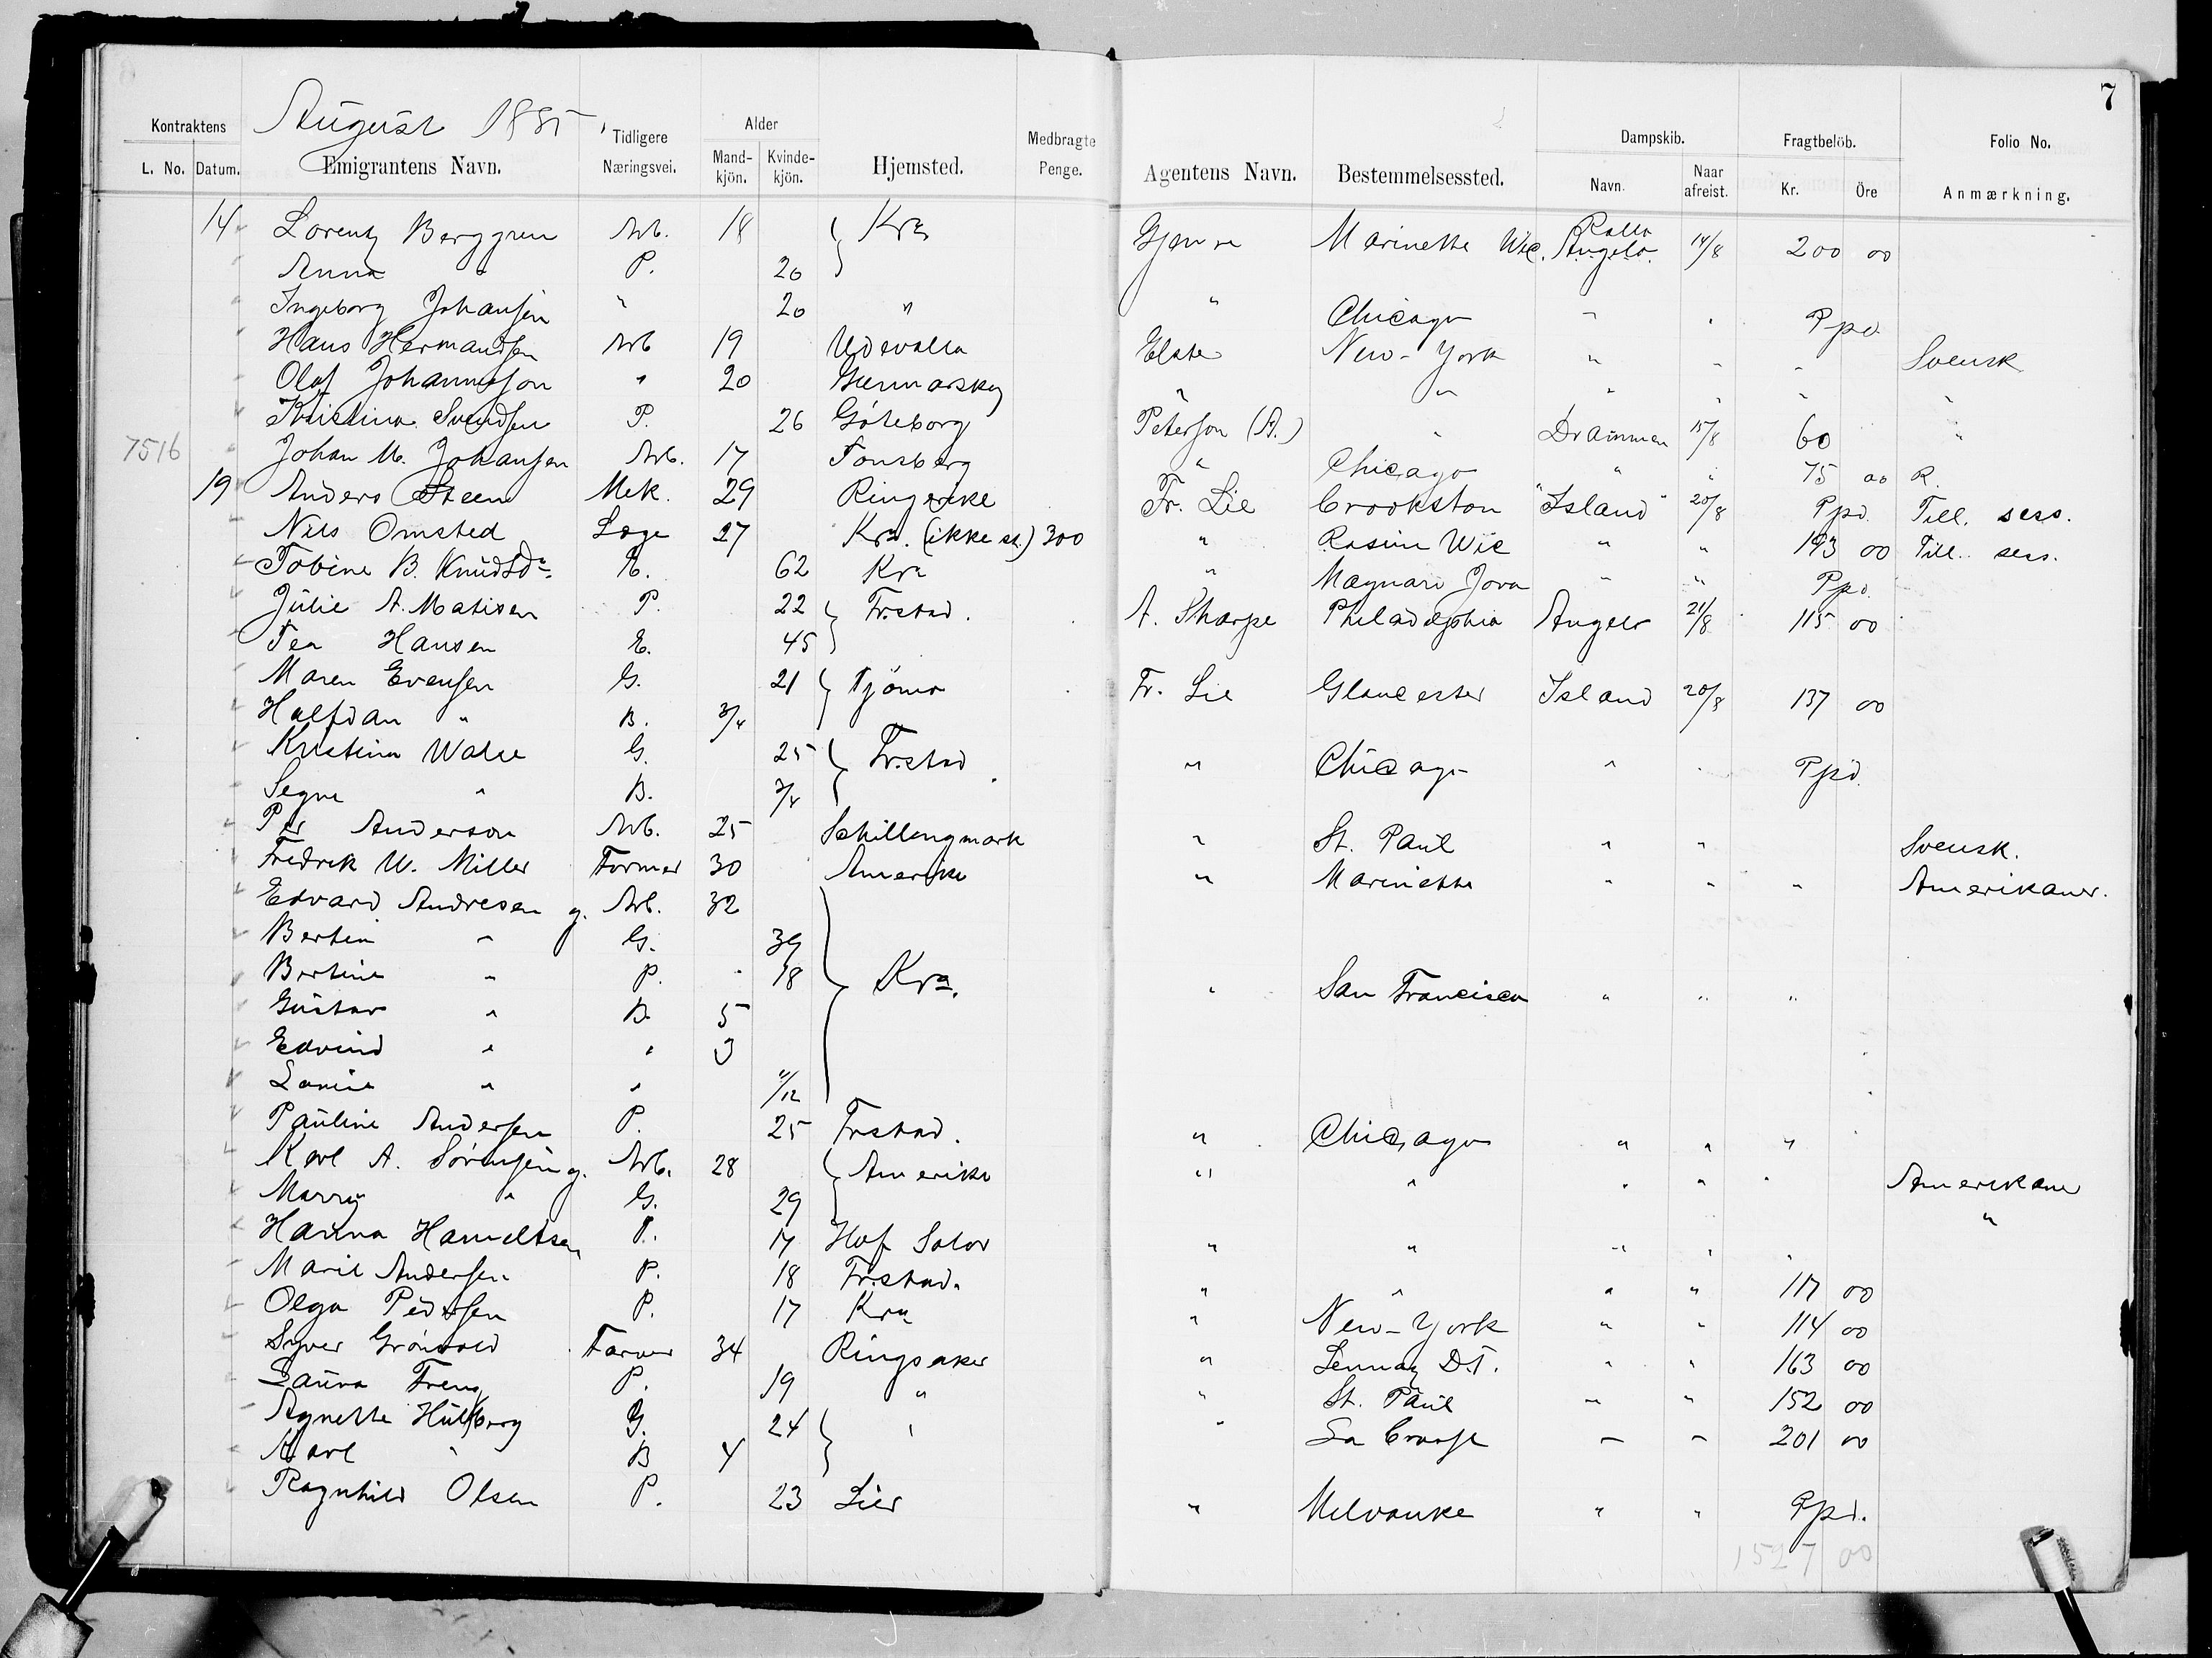 7
August 1885.
Kontraktens L. No. Datum. Emigrantens Navn. Tidligere Næringsvei. Alder Mandkjön. Kvindekjön. Hjemsted. Medbragte Penge. Agentens Navn. Bestemmelsessted. Dampskib. Navn. Naar afreist. Fragtbelöb. Kr. Öre Folio No. Anmærkning.
14 Lorentz Berggren Arb. 18 } Kra Marinette Wic. Rollo Angelo 14/8 200 00
Anna " P. 20
Ingeborg Johansen " 20 " " Chicago " " Ppd.
Hans Hermandsen Arb 19 Udevalla Elster New-York " " " Svensk
Olof Johannesson " 20 " " " " " "
Kristina Svendsen P. 26 Göteborg Peterson (A.) " Drammen 15/8 60 "
7516 Johan M. Johansen Arb. 17 Tonsberg " Chicago " " 75 00 R.
19 Anders Steen Mek. 29 Ringerike Fr. Lie Crookston "Island" 20/8 Ppd. Till. sess.
Nils Omsted Læge 27 Kra. (ikke st.) 300 " Rasine Wic " " 193 00 Till. sess.
Tobine B. Knudsdr. E. 62 Kra " " " Ppd.
Julie A. Matisen P. 22 } Fr.stad. A. Sharpe Philadelphia Angelo 21/8 115 00
Tea Hansen E. 45
Maren Evensen G. 21 } Tjömo Fr. Lie Gloucester Island 20/8 137 00
Halfdan " B. 3/4
Kristina Walse G. 25 } Fr.stad " Chicago " " Ppd.
Segne " B. 3/4
Per Anderson Arb. 25 Schillengmark " St. Paul " " Svensk.
Fredrek W. Miller Farmer 30 Amerika " Marinette " " " Amerikaner.
Edvard Andresen g. Arb. 32 } Kra. " San Francisco " " "
Bertin " G. 39
Bertine " P. 18
Gustav " B. 5
Edvind " " 3
" " 11/12
Pauline Andersen P. 25 Frstad. " Chicago " " "
Karl A. Sörensen g. Arb. 28 } Amerika " " " " " Amerikaner
Marry " G. 29 "
Hanna P. 17 Hof Solor " " " " "
Marie Andersen P. 18 Fr.stad. " " " " 117 00
Olga Pedersen P. 17 Kra " New-York " " 114 00
Syver Grönvold Farver 34 Ringsaker " D.T. " " 163 00
Laura Freng P. 19 " " St. Paul " " 152 00
Agnette Hulberg G. 24 } " " La Crosse " " 201 00
Karl " B 4
Ragnhild Olsen P. 23 Lier " Milvauke " " Ppd.
1527 00